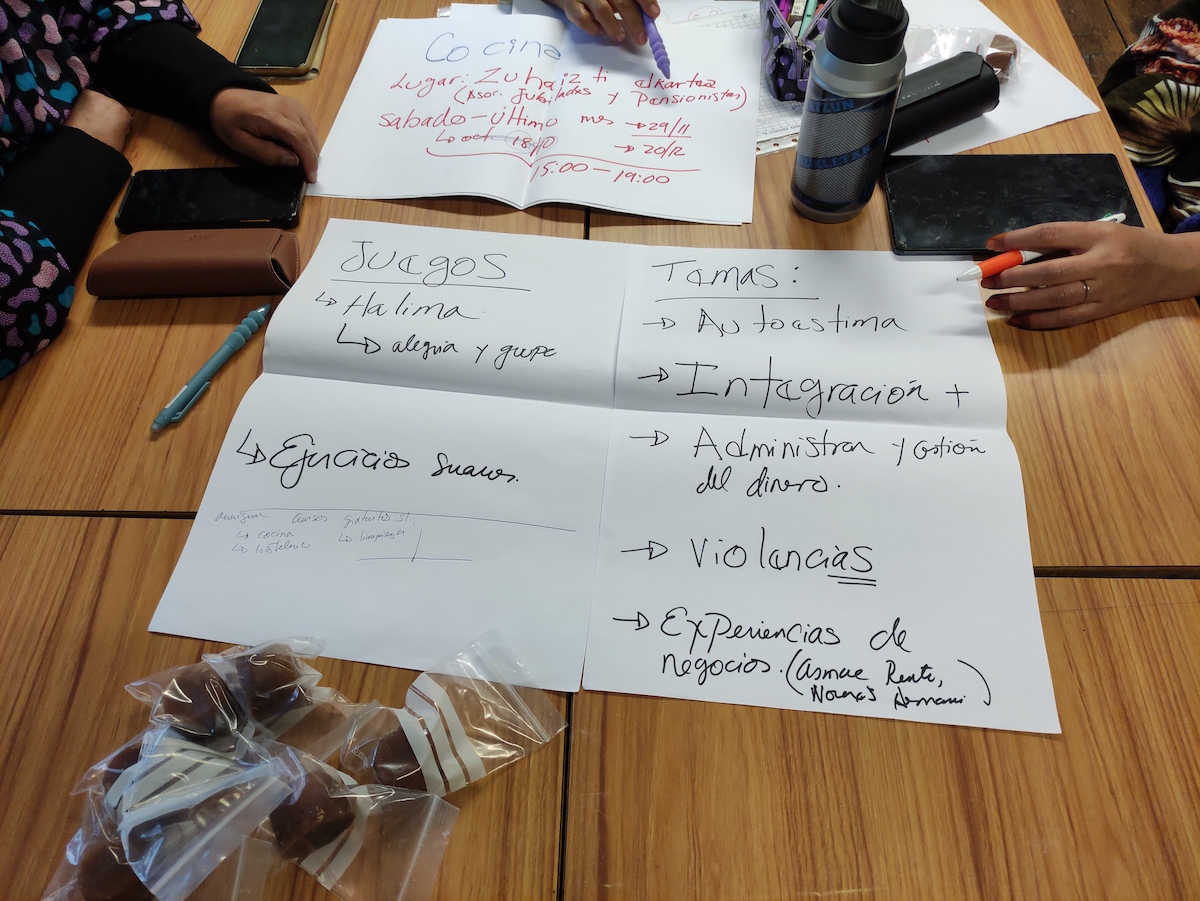 Cocina
Lugar: Zuhaizti elkartea
(Asor. Jubilados y Pensionistas)
sabado - último mes → 29/11
↳ oct. 18/10 → 20/12
15:00 - 19:00
Juegos
↳ Halima
↳ alegria y grupo
↳ Ejercicios suaves.
cursos gratuitos
↳ cocina ↳ limpieza
↳ hosteleria
Temas:
→ Autoestima
→ Integración +
→ Administrar y gestión
del dinero.
→ Violencias
→ Experiencias de
negocios. (Asmae Rente,
Hernani)